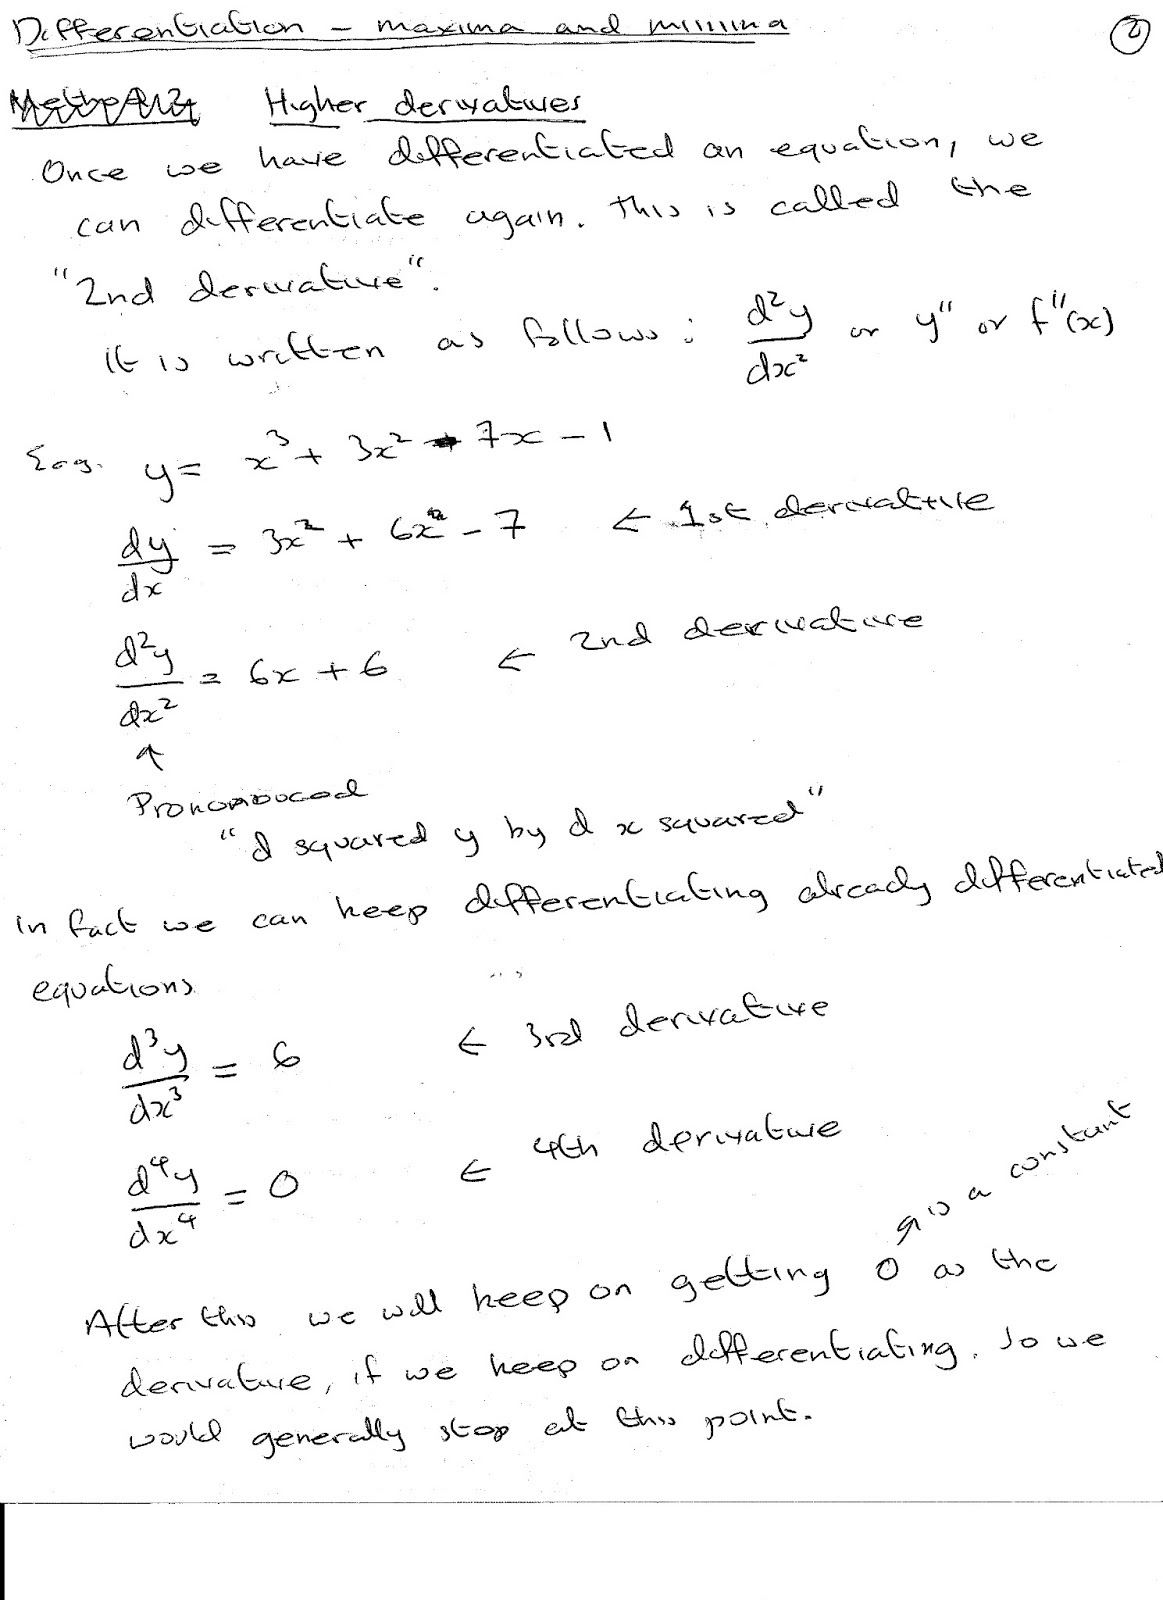 Differentiation - maxima and minima
②
Higher derivatives
Once we have differentiated an equation, we
can differentiate again. This is called the
"2nd derivative".
It is written as follows: d²y/dx² or y'' or f''(x)
E.g. y = x³ + 3x² - 7x - 1
dy/dx = 3x² + 6x - 7 ← 1st derivative
d²y/dx² = 6x + 6 ← 2nd derivative
↑
Pronounced
"d squared y by d x squared"
In fact we can keep differentiating already differentiated
equations
d³y/dx³ = 6 ← 3rd derivative
d⁴y/dx⁴ = 0 ← 4th derivative
is a constant
After this we will keep on getting 0 as the
derivative, if we keep on differentiating. So we
would generally stop at this point.